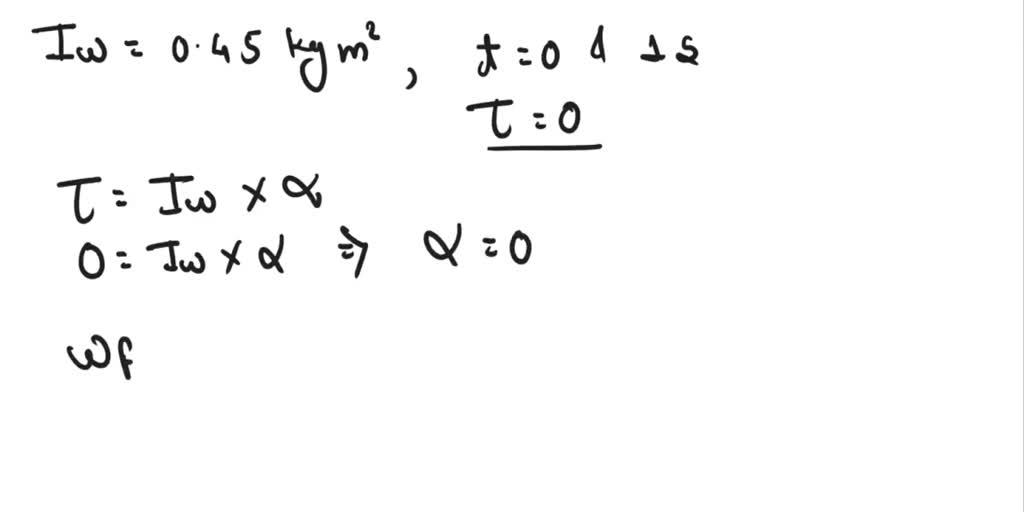 Iω = 0.45 kgm², t=0 & 1s
τ = 0
τ = Iω × α
0 = Iω × α ⇒ α = 0
ωf